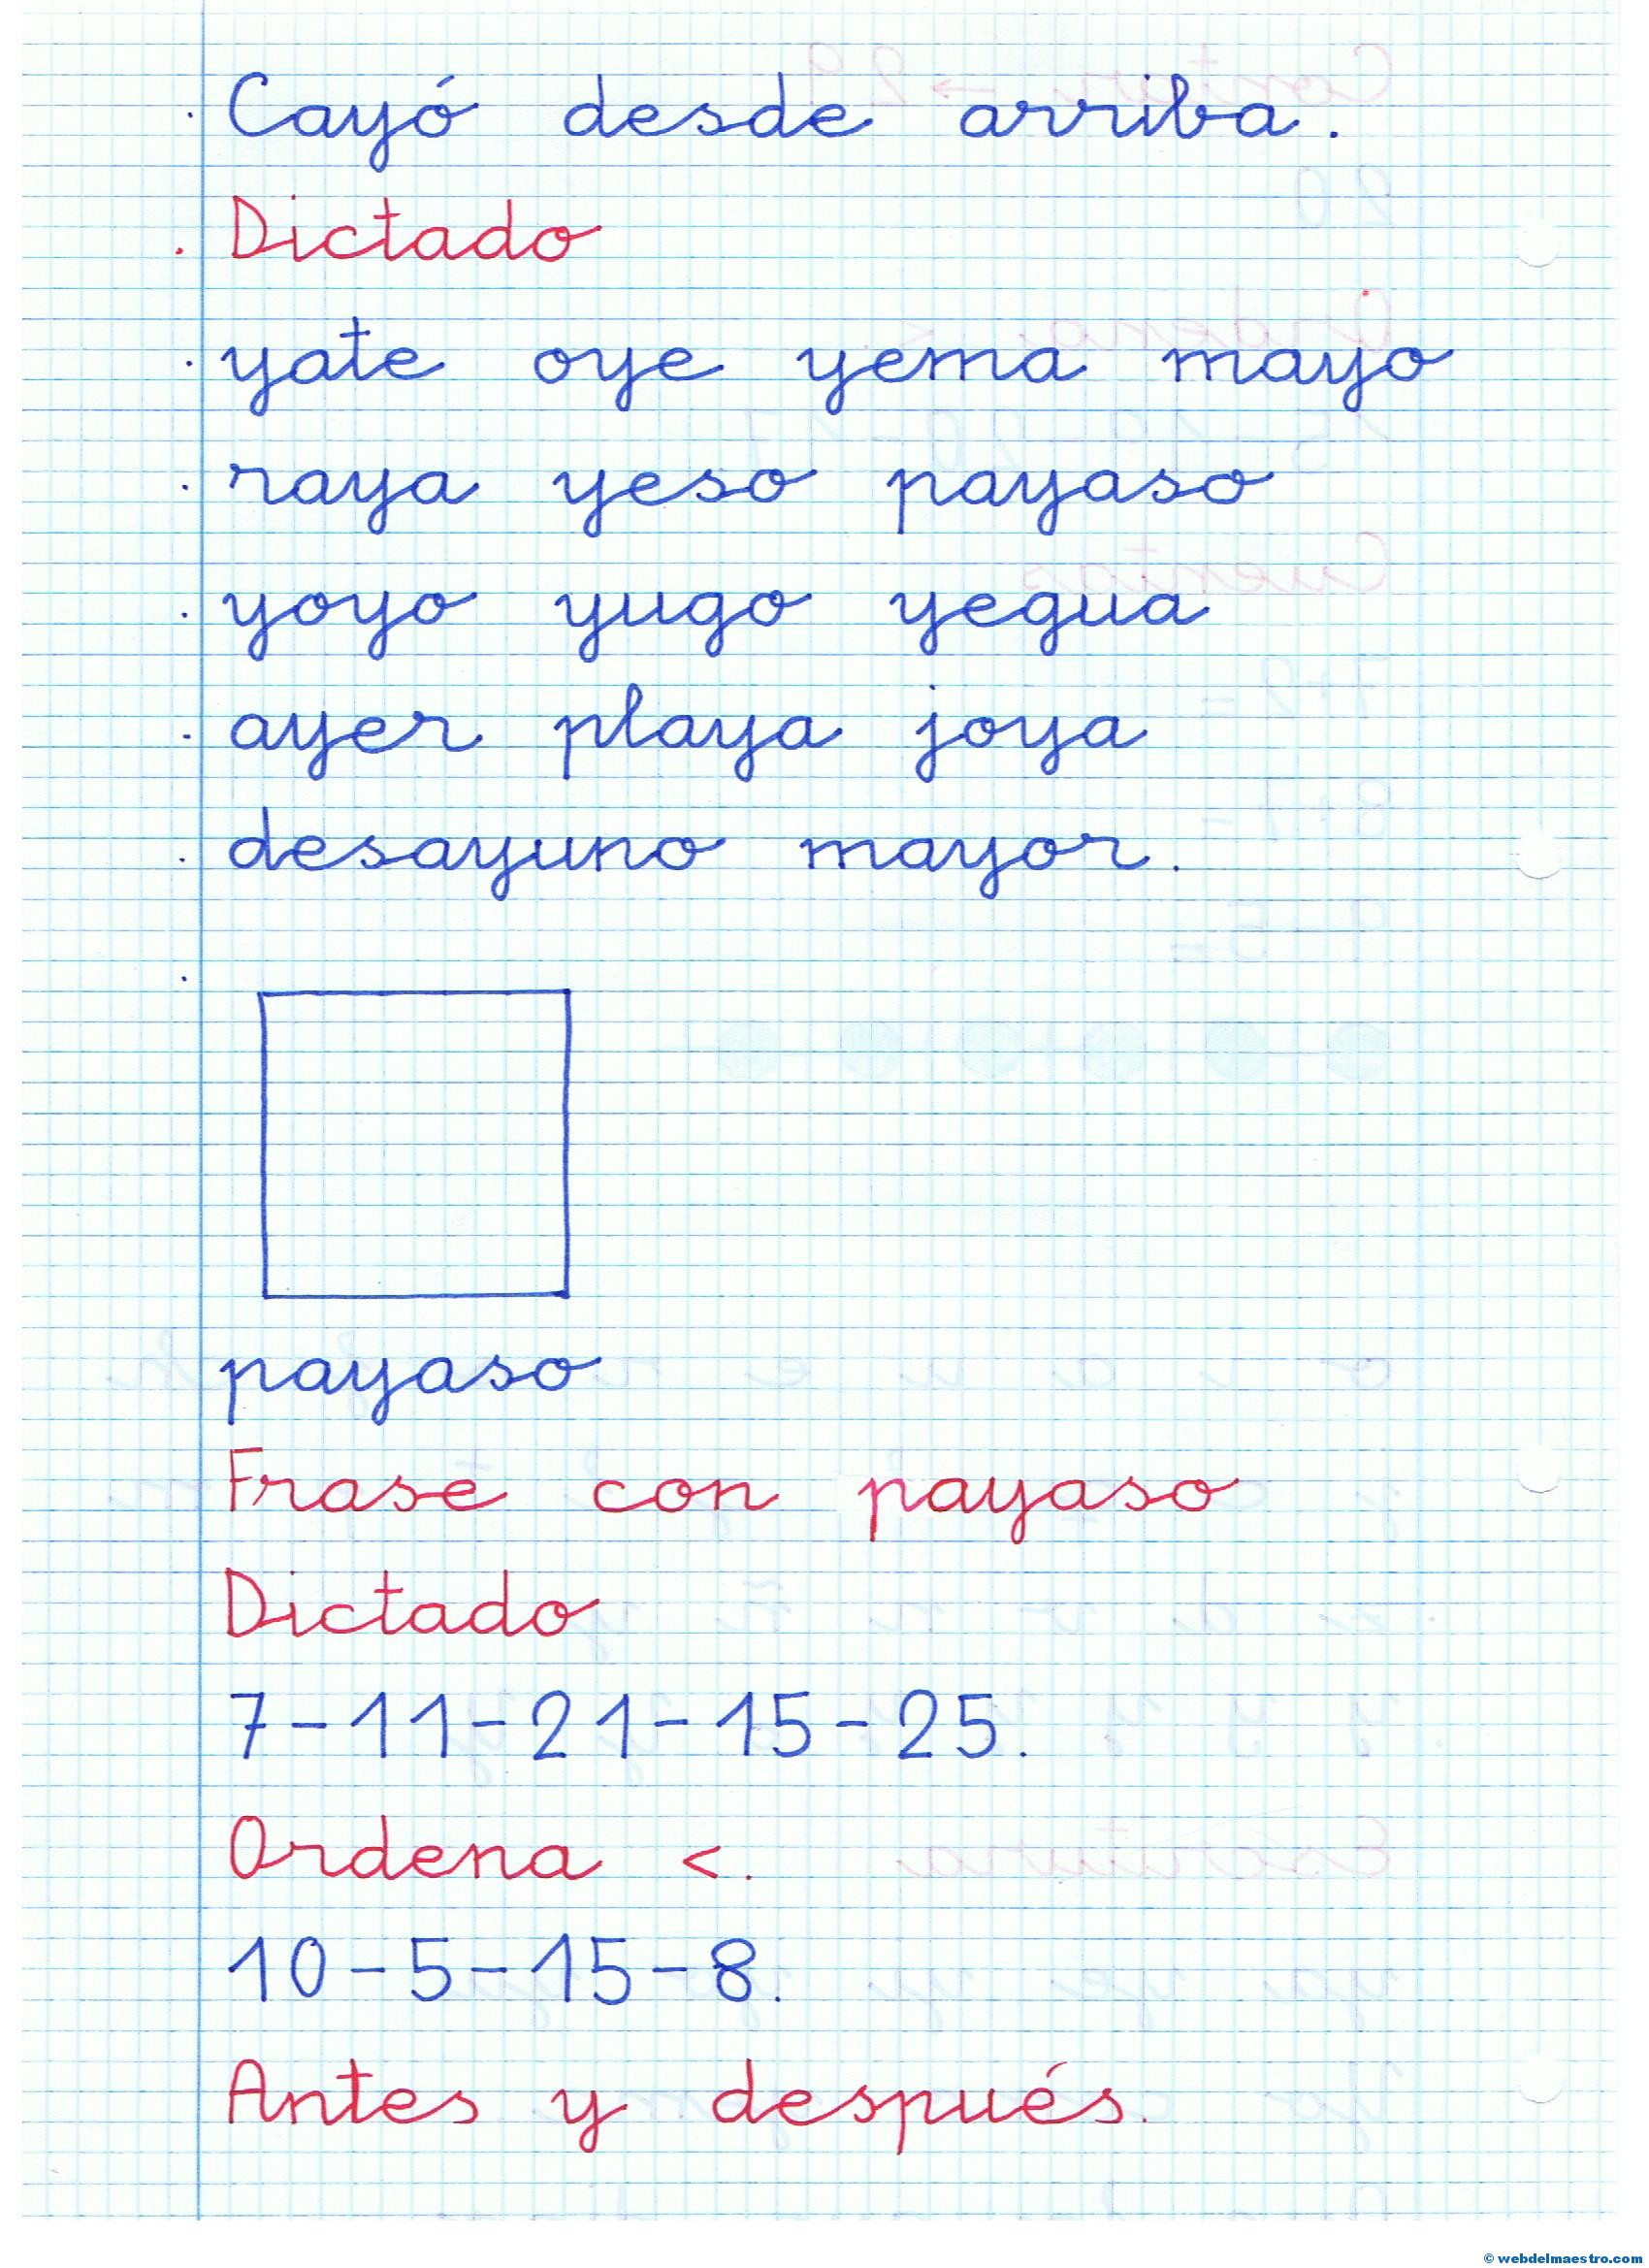 Cayó desde arriba.
Dictado
yate oye yema mayo
raya yeso payaso
yoyo yugo yegua
ayer playa joya
desayuno mayor.
payaso
Frase con payaso
Dictado
7-11-21-15-25.
Ordena <.
10-5-15-8.
Antes y después.
© webdelmaestro.com